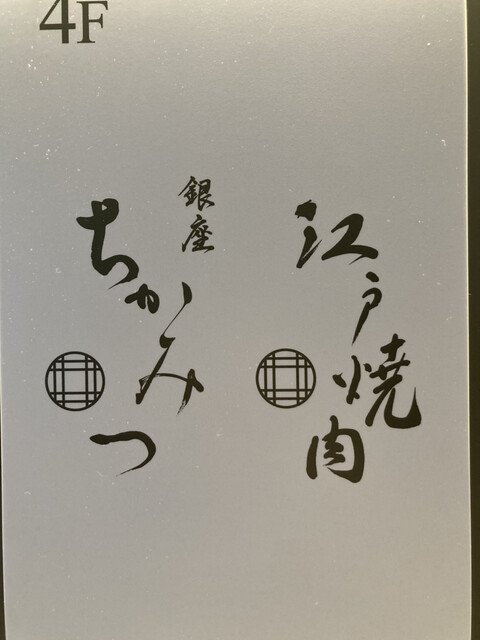 4F
江戸焼肉
銀座
ちかみつ